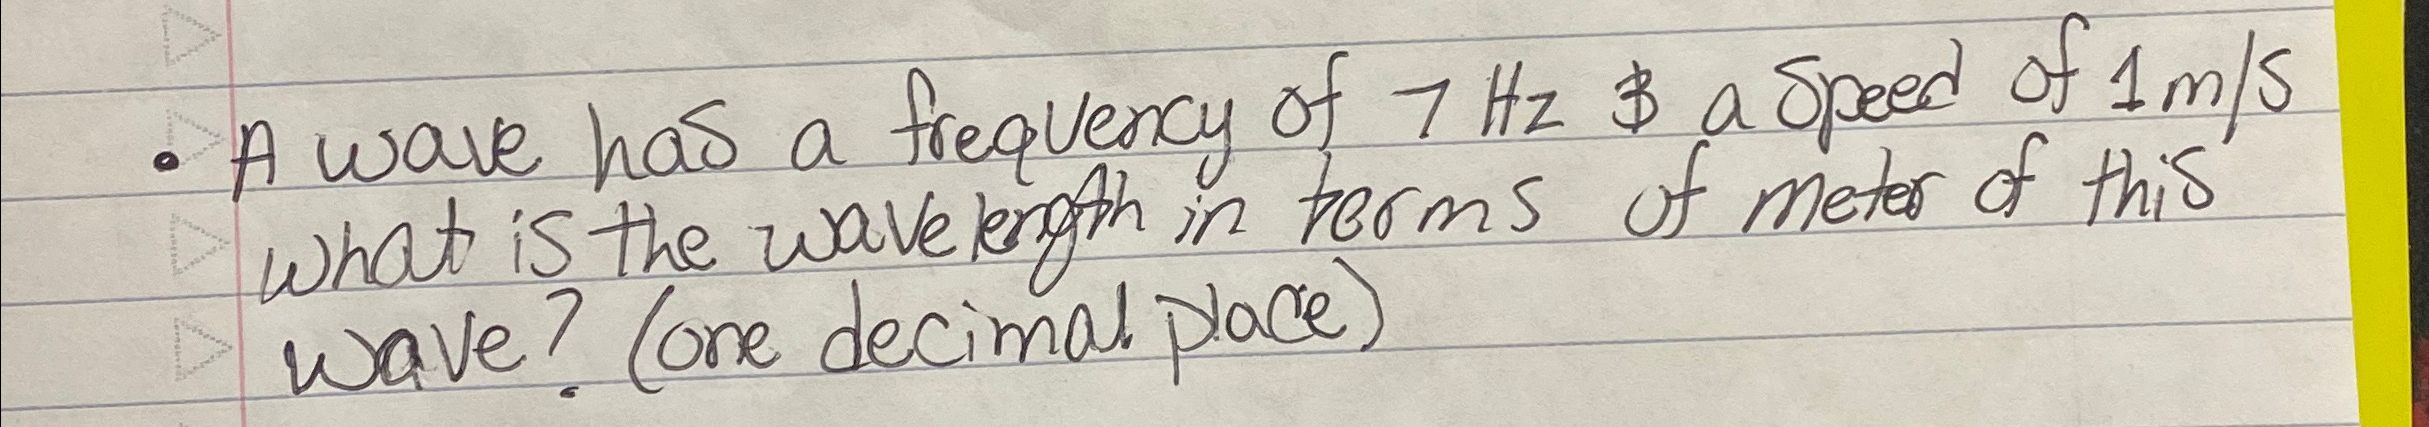 • A wave has a frequency of 7 Hz & a speed of 1 m/s
what is the wavelength in terms of meter of this
wave? (one decimal place)